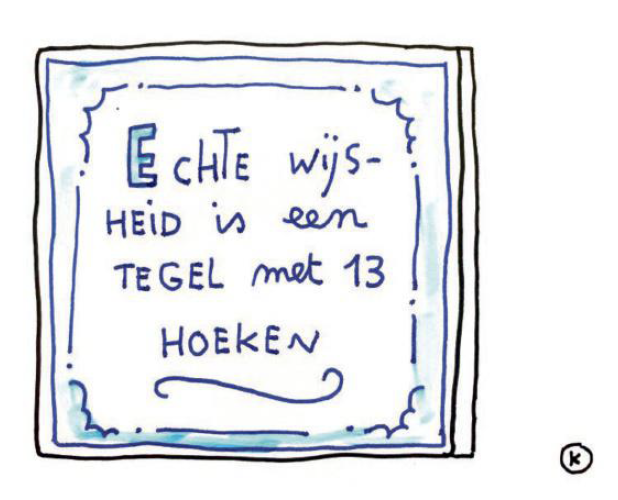 ECHTE wijs-
HEiD is een
TEGEL met 13
HOEKEN
K